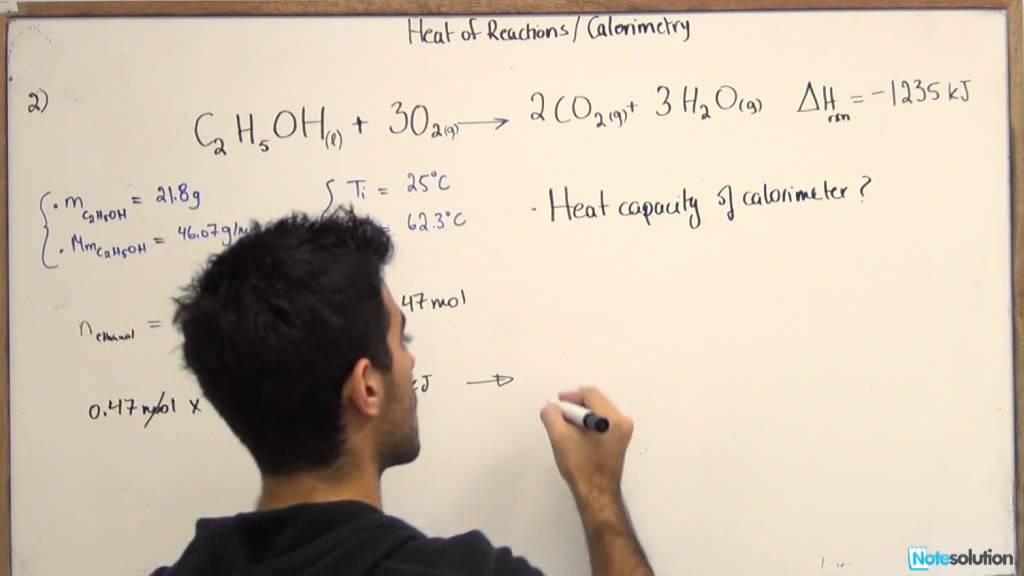 Heat of Reactions/Calorimetry
2)
C₂H₅OH(l) + 3O₂(g) → 2CO₂(g) + 3H₂O(g) ΔHrxn = -1235 kJ
{ . m C₂H₅OH = 21.8g { Ti = 25°C
. Mm C₂H₅OH = 46.07g/ = 62.3°C
. Heat capacity of calorimeter?
n ethanol = 47 mol
0.47 mol x kJ →
Notesolution